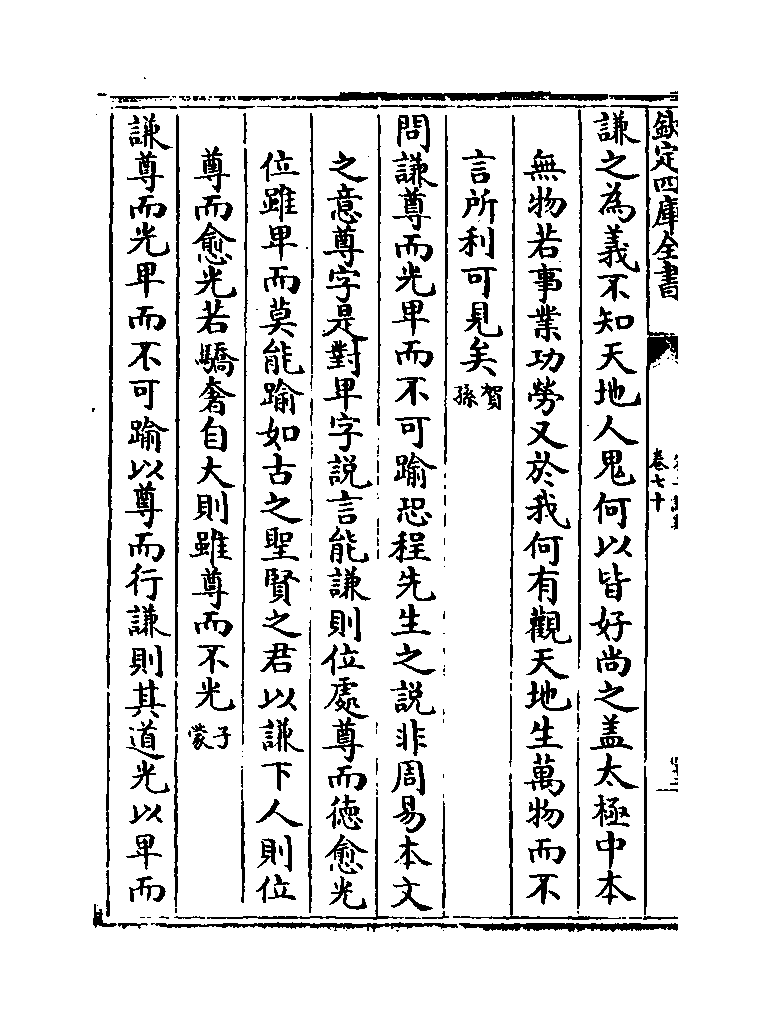 欽定四庫全書
卷七十
謙之為義不知天地人鬼何以皆好尚之盖太極中本
無物若事業功勞又於我何有觀天地生萬物而不
言所利可見矣賀孫
問謙尊而光卑而不可踰恐程先生之説非周易本文
之意尊字是對卑字説言能謙則位處尊而徳愈光
位雖卑而莫能踰如古之聖賢之君以謙下人則位
尊而愈光若驕奢自大則雖尊而不光子蒙
謙尊而光卑而不可踰以尊而行謙則其道光以卑而